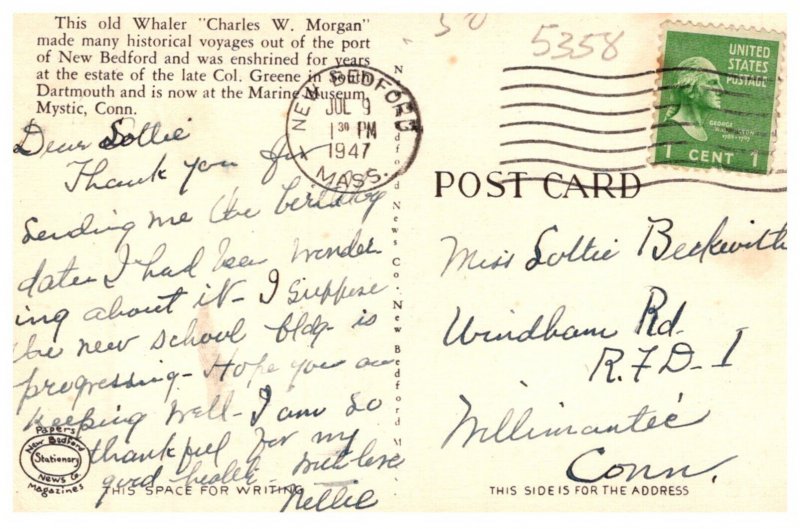 This old Whaler "Charles W. Morgan"
made many historical voyages out of the port
of New Bedford and was enshrined for years
at the estate of the late Col. Greene in South
Dartmouth and is now at the Marine Museum,
Mystic, Conn.
Dear Lottie
Thank you for
sending me the birthday
date. I had been wonder-
ing about it - I suppose
the new school bldg. is
progressing - Hope you are
keeping well - I am so
thankful for my
good health - with love
Nellie
Papers
New Bedford
Stationery
News Co.
Magazines
THIS SPACE FOR WRITING
NEW BEDFORD
JUL 9
1 30 PM
1947
MASS.
New Bedford News Co., New Bedford, M
5358
UNITED
STATES
POSTAGE
GEORGE
WASHINGTON
1 CENT 1
POST CARD
Miss Lottie Beckwith
Windham Rd.
R.F.D-1
Willimantic
Conn.
THIS SIDE IS FOR THE ADDRESS